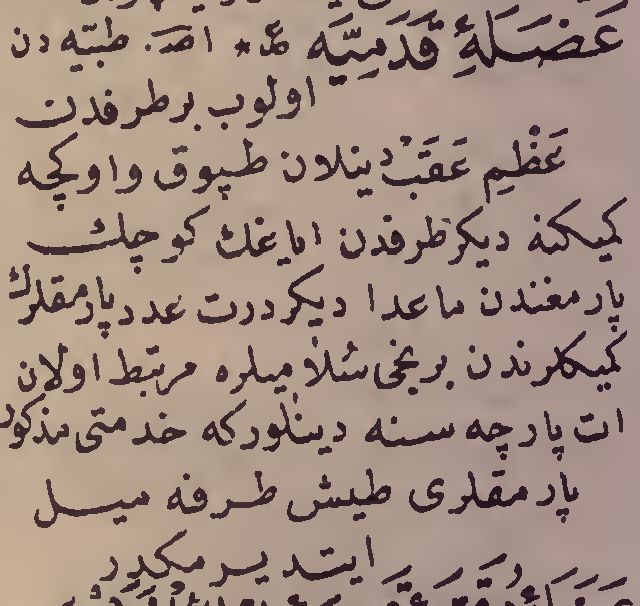 عَضَلَۀِ قَدَمِیَّه عـ * اصـ. طبیّه دن
اولوب برطرفدن
عَظْمِ عَقَبْ دینلان طپوق واوکچه
کمیکنه دیکر طرفدن ایاغڭ کوچك
پارمغندن ماعدا دیکر درت عدد پارمقلرڭ
کمیکلرندن برنجی سُلامیلره مرتبط اولان
ات پارچه سنه دینلورکه خدمتی مذکور
پارمقلری طیش طرفه میـل
ایتدیرمکدر